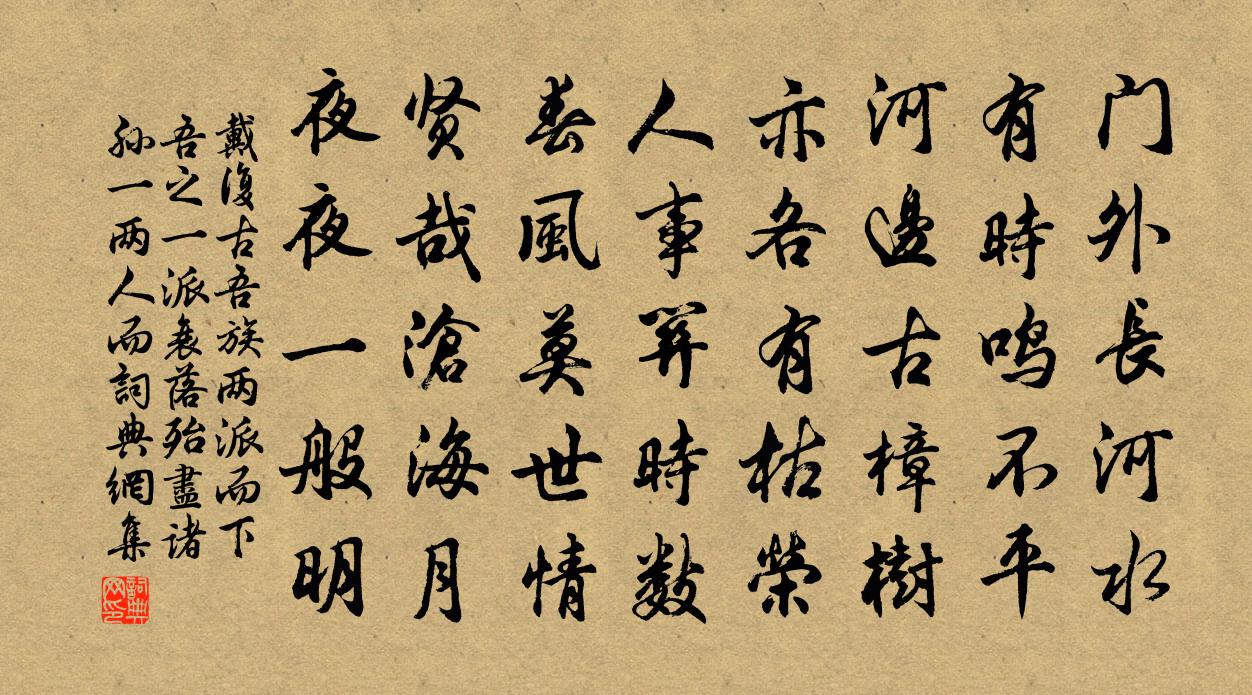 门外長河水
有時鸣不平
河邊古樟樹
亦各有枯榮
人事關時数
春風莫世情
贤哉滄海月
夜夜一般明
戴復古吾族两派而下
吾之一派衰落殆盡诸
孫一两人而詞典網集
詞典网印